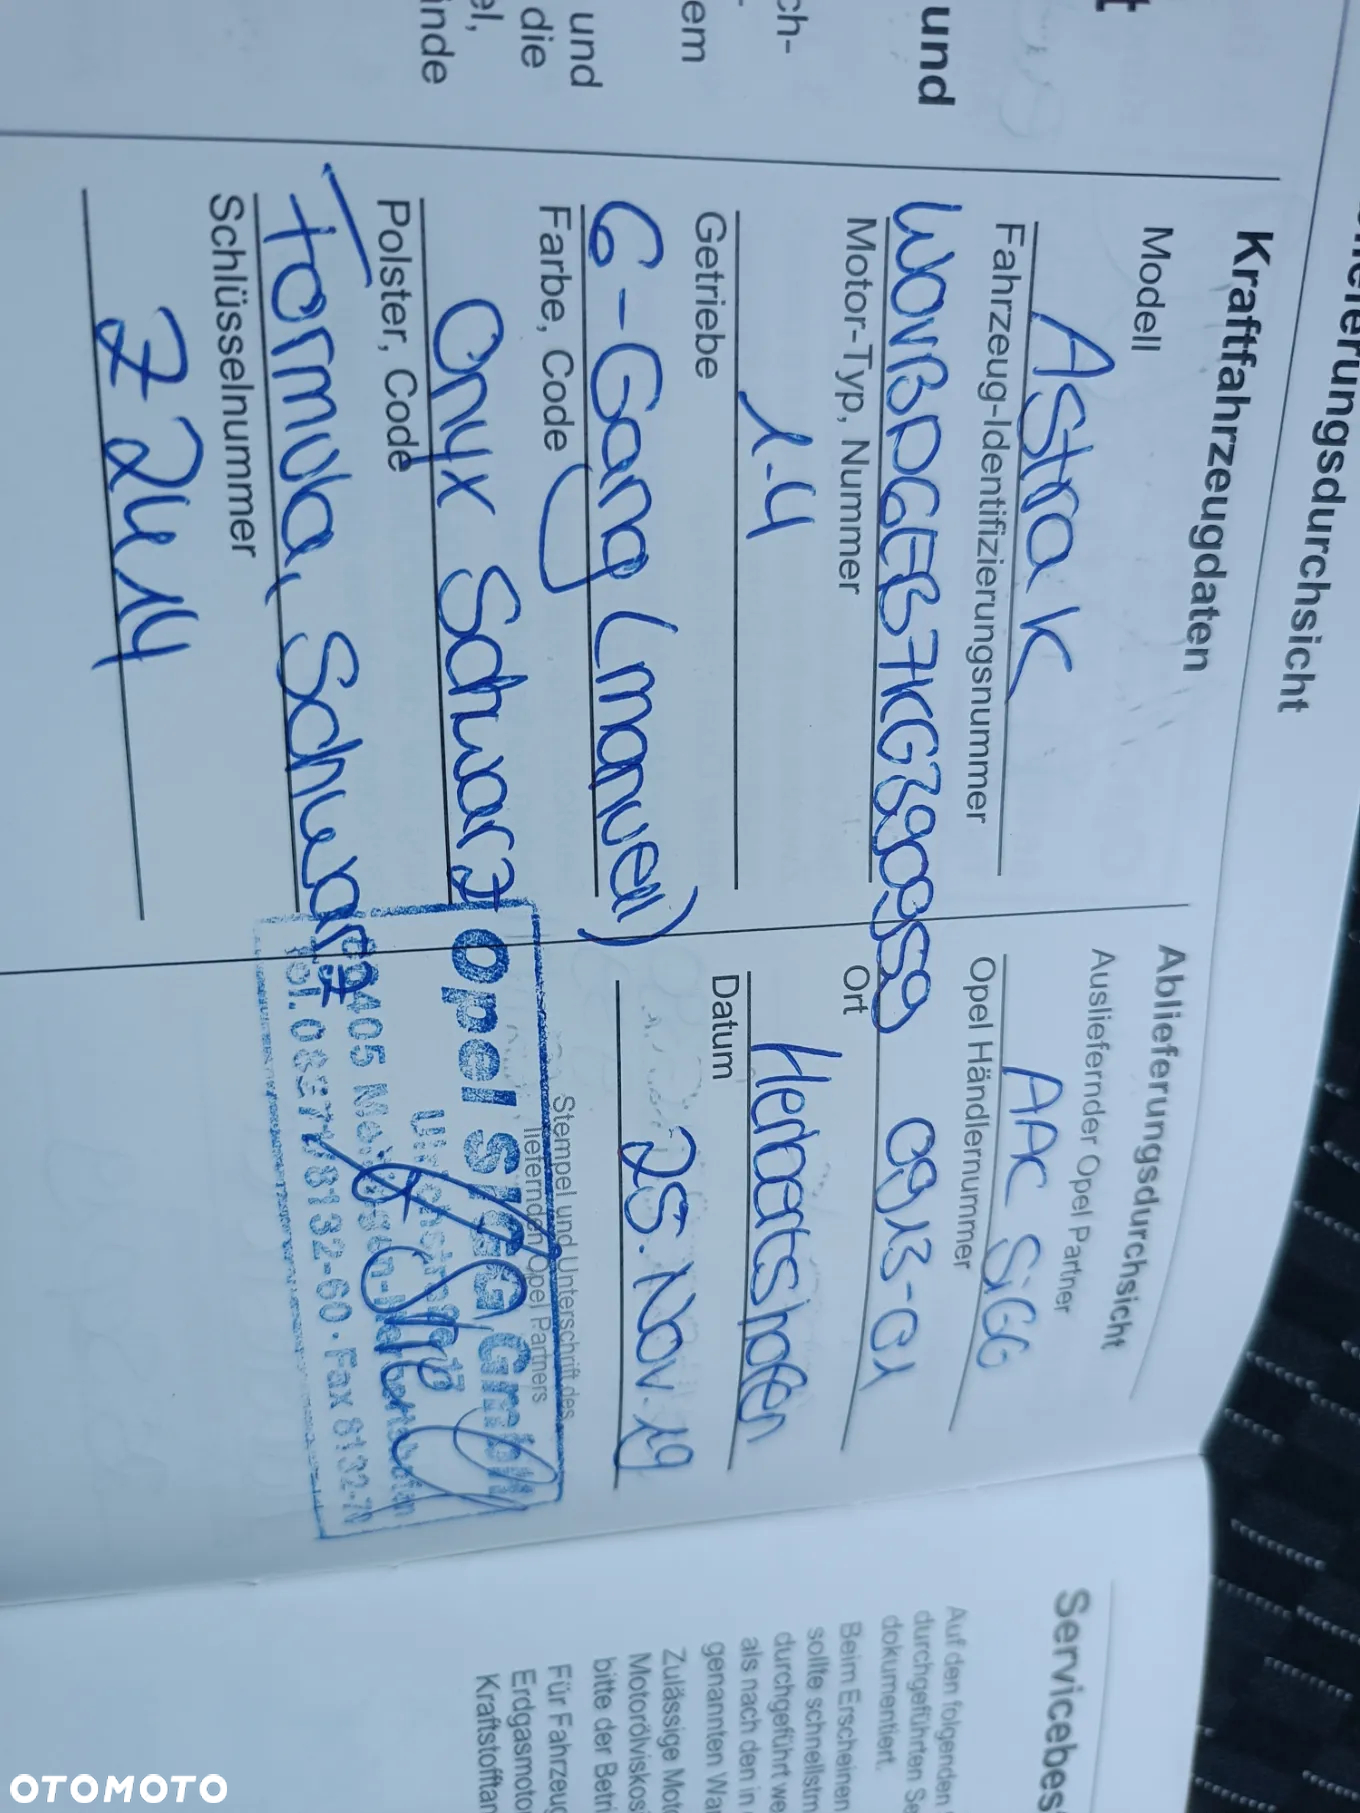 t
und
ch-
em
und
die
el,
inde
ieferungsdurchsicht
Kraftfahrzeugdaten
Modell
Astra K
Fahrzeug-Identifizierungsnummer
W0VBD6EB7KG390959
Motor-Typ, Nummer
1.4
Getriebe
6-Gang (manuell)
Farbe, Code
Onyx Schwarz
Polster, Code
Formula, Schwarz
Schlüsselnummer
Z2414
Ablieferungsdurchsicht
Ausliefernder Opel Partner
AAC SiGG
Opel Händlernummer
0913-01
Ort
Herbertshofen
Datum
25. Nov. 19
Stempel und Unterschrift des
liefernden Opel Partners
Opel SIGG GmbH
Fax 8132-70
Servicebes
Auf den folgenden
durchgeführten Se
dokumentiert.
Beim Erscheinen
sollte schnellstm
durchgeführt we
als nach den in
genannten War
Zulässige Moto
Motorölviskos
bitte der Betri
Für Fahrzeug
Erdgasmoto
Kraftstofftan
OTOMOTO